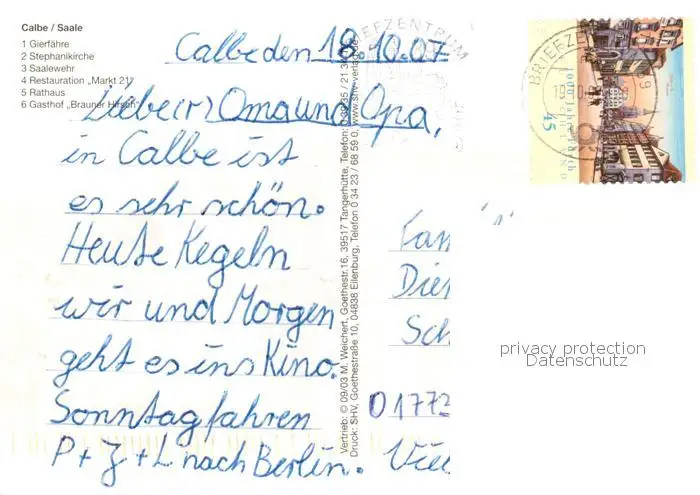 Calbe / Saale
1 Gierfähre
2 Stephanikirche
3 Saalewehr
4 Restauration „Markt 21“
5 Rathaus
6 Gasthof „Brauner Hirsch“
Calbe den 18.10.07
Liebe(r) Oma und Opa,
in Calbe ist
es sehr schön.
Heute Kegeln
wir und Morgen
geht es ins Kino.
Sonntag fahren
P + J + L nach Berlin.
Vertrieb: © 09/03 M. Weichert, Goethestr.16, 39517 Tangerhütte, Telefon:
Druck: SHV, Goethestraße 10, 04838 Eilenburg, Telefon 0 34 23 / 68 59 0, www.shv-verlag.de
BRIEFZENTRUM
BRIEFZEN
45
Fam
Die
Sch
privacy protection
Datenschutz